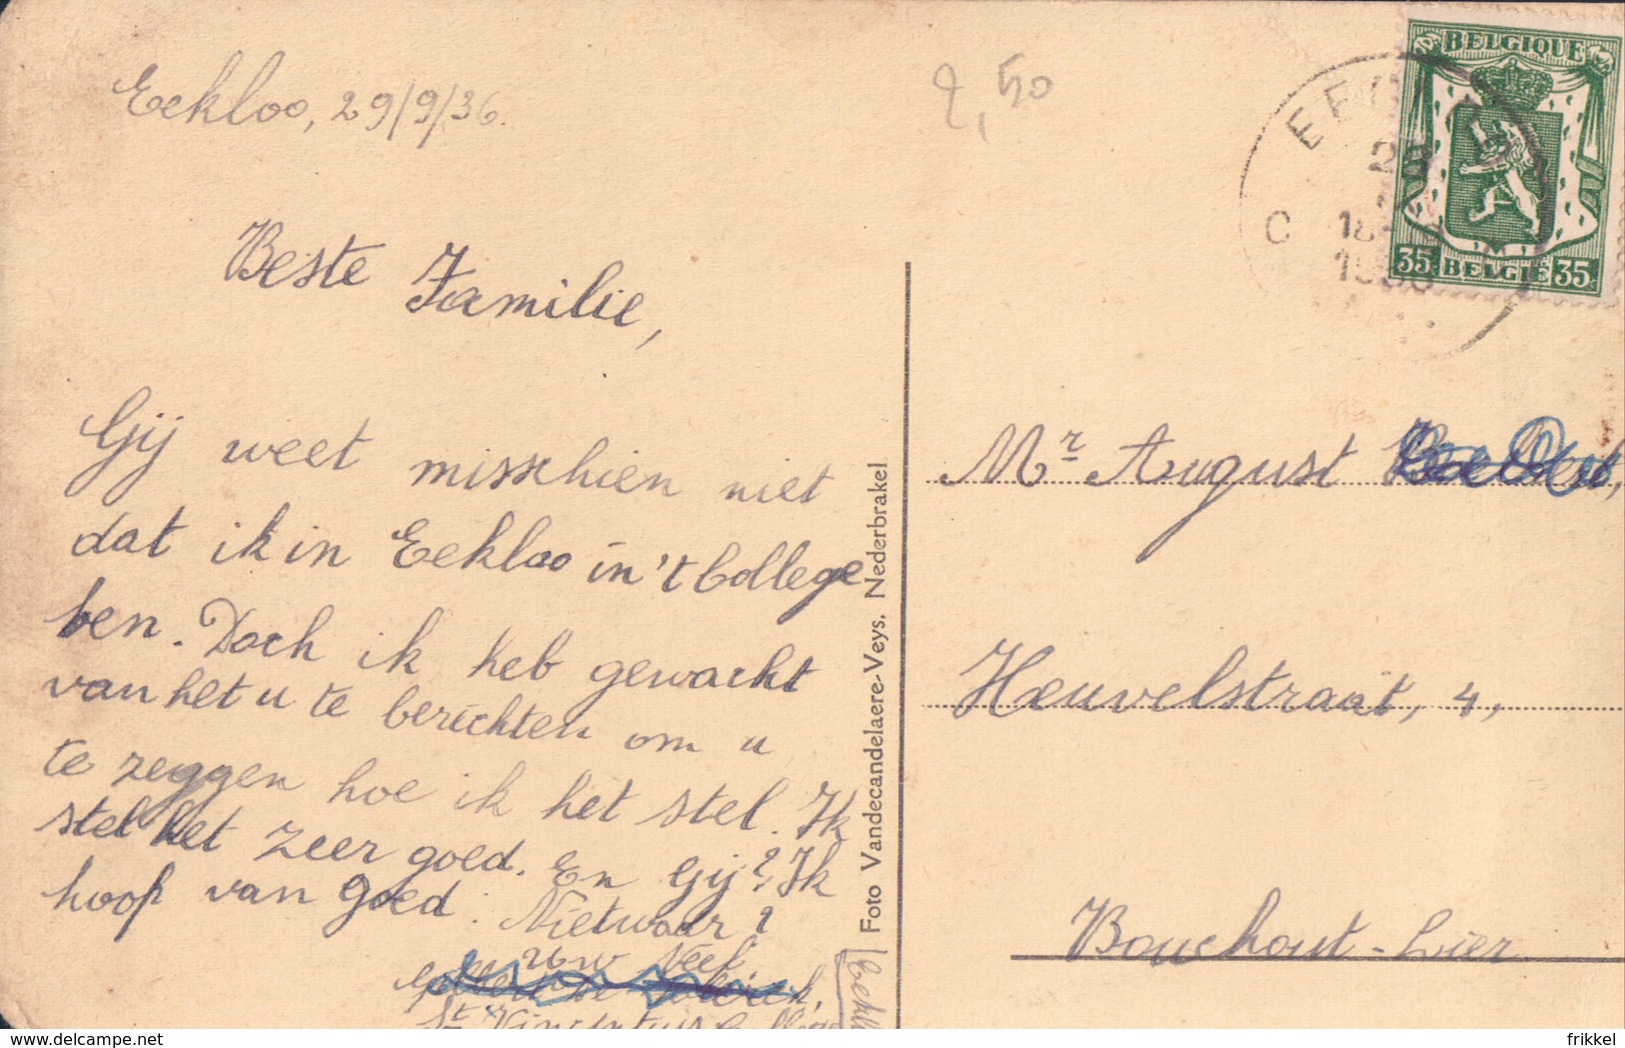 Eekloo, 29/9/36.
2,50
BELGIQUE
35 BELGIË 35
C
Beste Familie,
Gij weet misschien niet
dat ik in Eekloo in 't College
ben. Doch ik heb gewacht
van het u te berichten om u
te zeggen hoe ik het stel. Ik
stel het zeer goed. En Gij? Ik
hoop van goed. Nietwaar?
Uw Neef
St Vincentius College
Foto Vandecandelaere-Veys, Nederbrakel
Mr August
Heuvelstraat, 4,
Bouchout-Lier
frikkel
delcampe.net